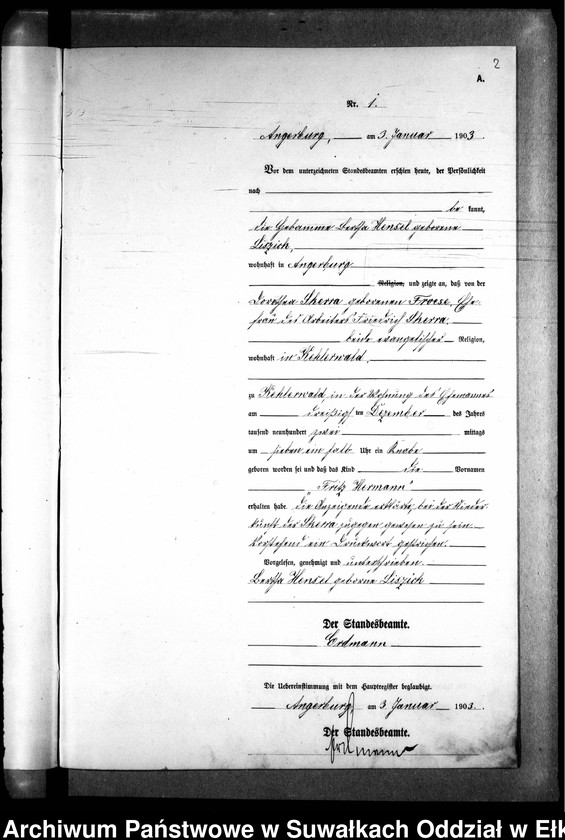 2
A.
Nr. 1.
Angerburg, am 3. Januar 1903
Vor dem unterzeichneten Standesbeamten erschien heute, der Persönlichkeit
nach
be kannt,
die Hebamme Bertha Hensel geborene
Liszich,
wohnhaft in Angerburg
Religion, und zeigte an, daß von der
Dorothea Skerra, geborenen Froese, Ehe-
frau des Arbeiters Friedrich Skerra,
beide evangelischer Religion,
wohnhaft in Kehlerwald,
zu Kehlerwald, in der Wohnung des Ehemannes
am dreißigsten Dezember des Jahres
tausend neunhundert zwei mittags
um sieben ein halb Uhr ein Knabe
geboren worden sei und daß das Kind die Vornamen
"Fritz Hermann"
erhalten habe. die Anzeigende erklärte, bei der Nieder-
kunft der Skerra zugegen gewesen zu sein.
Vorstehend ein Druckwort gestrichen.
Vorgelesen, genehmigt und unterschrieben.
Bertha Hensel geborne Liszich
Der Standesbeamte.
Erdmann
Die Uebereinstimmung mit dem Hauptregister beglaubigt.
Angerburg, am 3. Januar 1903.
Der Standesbeamte.
Erdmann
Archiwum Państwowe w Suwałkach Oddział w Ełk